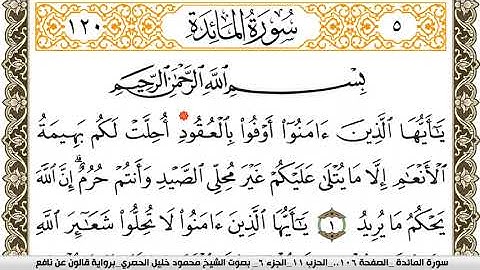 ١٢٠ سُورَةُ المَائِدَة ٥
بِسْمِ اللَّهِ الرَّحْمَٰنِ الرَّحِيمِ
يَـٰٓأَيُّهَا ٱلَّذِينَ ءَامَنُوٓا۟ أَوْفُوا۟ بِٱلْعُقُودِ أُحِلَّتْ لَكُم بَهِيمَةُ
ٱلْأَنْعَـٰمِ إِلَّا مَا يُتْلَىٰ عَلَيْكُمْ غَيْرَ مُحِلِّى ٱلصَّيْدِ وَأَنتُمْ حُرُمٌ ۗ إِنَّ ٱللَّهَ
يَحْكُمُ مَا يُرِيدُ ١ يَـٰٓأَيُّهَا ٱلَّذِينَ ءَامَنُوا۟ لَا تُحِلُّوا۟ شَعَـٰٓئِرَ ٱللَّهِ
سورة المائدة _الصفحة ١٠٦،،،الحزب ١١_الجزء ٦_ بصوت الشيخ محمود خليل الحصري_برواية قالون عن نافع